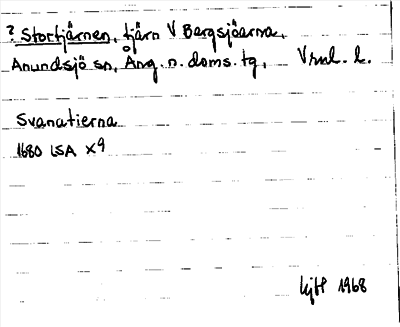 ? Stortjärnen, tjärn V Bergsjöarna,
Anundsjö sn, Ång. n. doms. tg,
Svanatierna
1680 LSA X9
1968